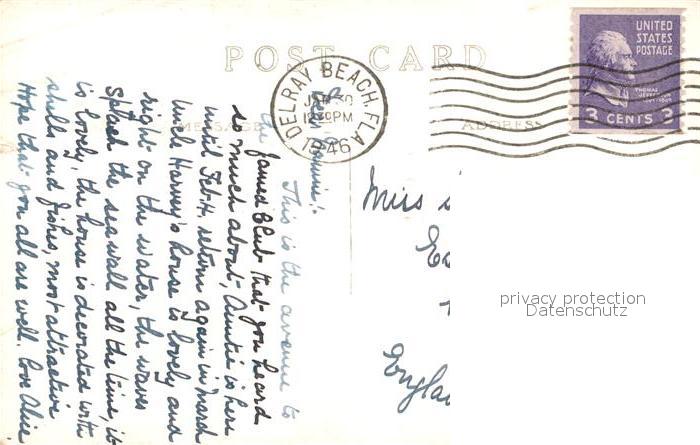 POST CARD
DELRAY BEACH, FLA.
JAN 30
12 PM
1946
UNITED
STATES
POSTAGE
THOMAS
JEFFERSON
3 CENTS 3
MESSAGE
ADDRESS
This is the avenue to
the famed Club that you heard
so much about, Auntie is here
until Feb. 4, return again in March
Uncle Harvey's house is lovely and
right on the water, the waves
splash the seawall all the time, it
is lovely, the house is decorated with
shells and fishes, most attractive
Hope that you all are well. Love Alice
Miss
Englan
privacy protection
Datenschutz